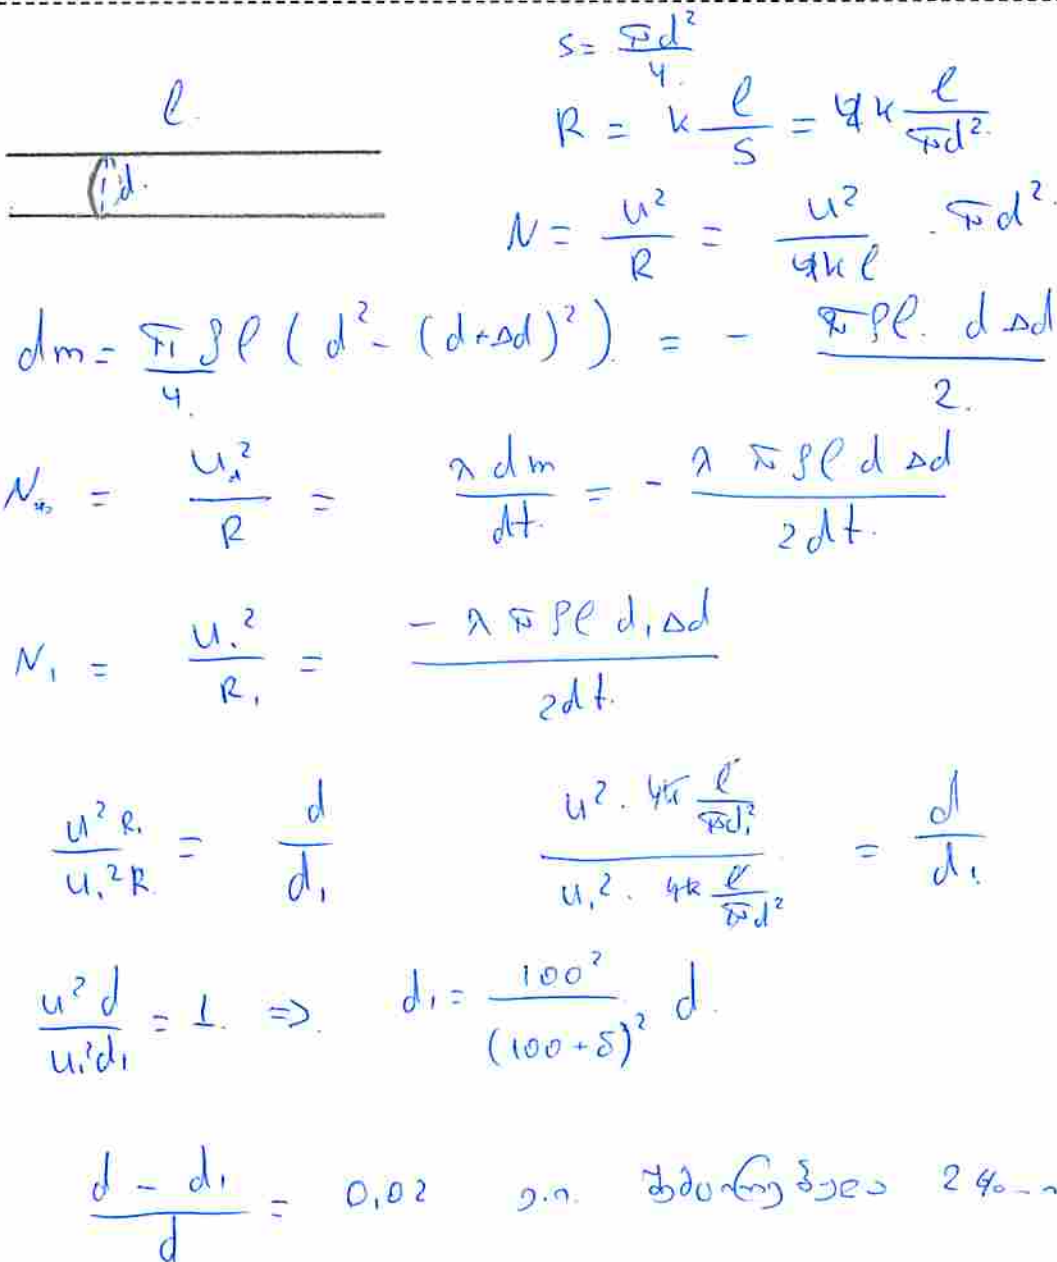 S = πd²/4
l
R = k l/S = 4k l/πd²
d
N = u²/R = u²/4kl · πd²
dm = π/4 ρl (d² - (d+Δd)²) = - πρl · d Δd/2
N = u²/R = λ dm/dt = - λ πρl d Δd/2dt
N₁ = u₁²/R₁ = - λ πρl d₁ Δd/2dt
u² R₁/u₁² R = d/d₁ u² · 4k l/πd₁² / u₁² · 4k l/πd² = d/d₁
u² d/u₁² d₁ = 1 => d₁ = 100²/(100+δ)² d
d - d₁/d = 0,02 ე.ი. შემცირებულა 2%-ი